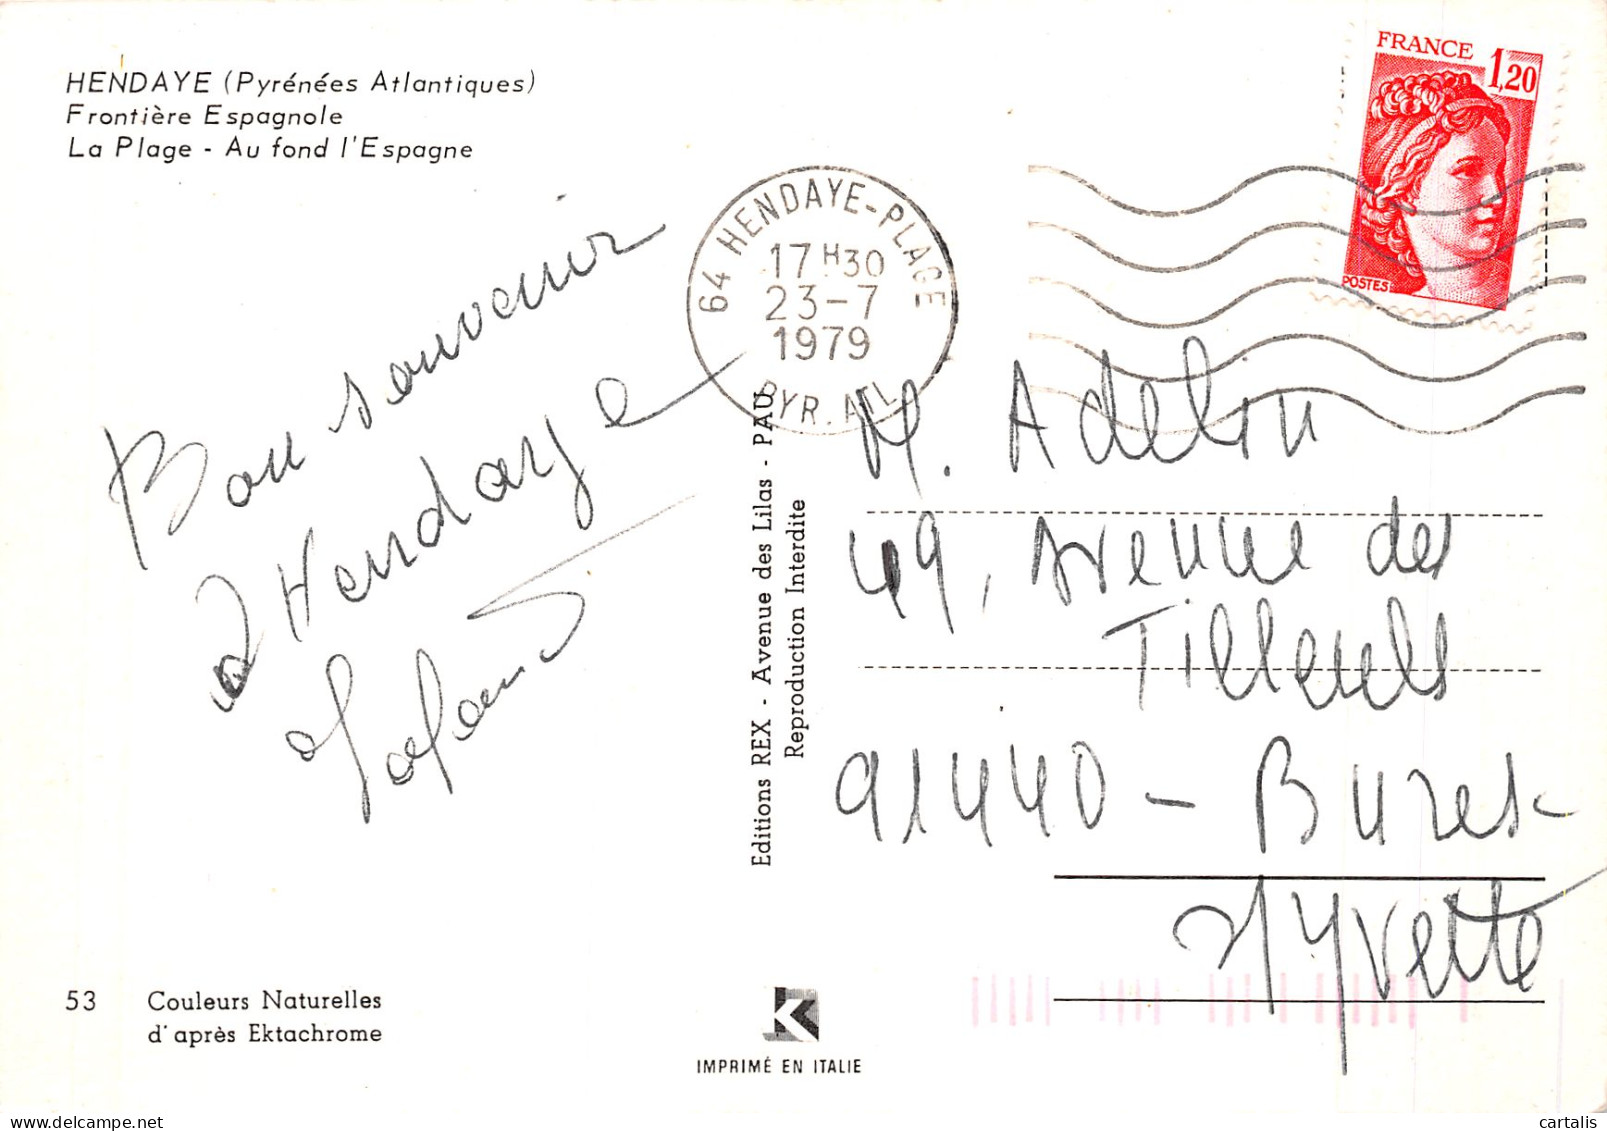 HENDAYE (Pyrénées Atlantiques)
Frontière Espagnole
La Plage - Au fond l'Espagne
FRANCE 1,20
POSTES
64 HENDAYE-PLAGE
17 H30
23-7
1979
PYR. ATL
Bon souvenir
d'Hendaye
M. Adelin
49, Avenue des
Tilleuls
91440 - Bures-
s/Yvette
Editions REX - Avenue des Lilas - PAU
Reproduction Interdite
53 Couleurs Naturelles
d'après Ektachrome
K
IMPRIMÉ EN ITALIE
delcampe.net
cartalis